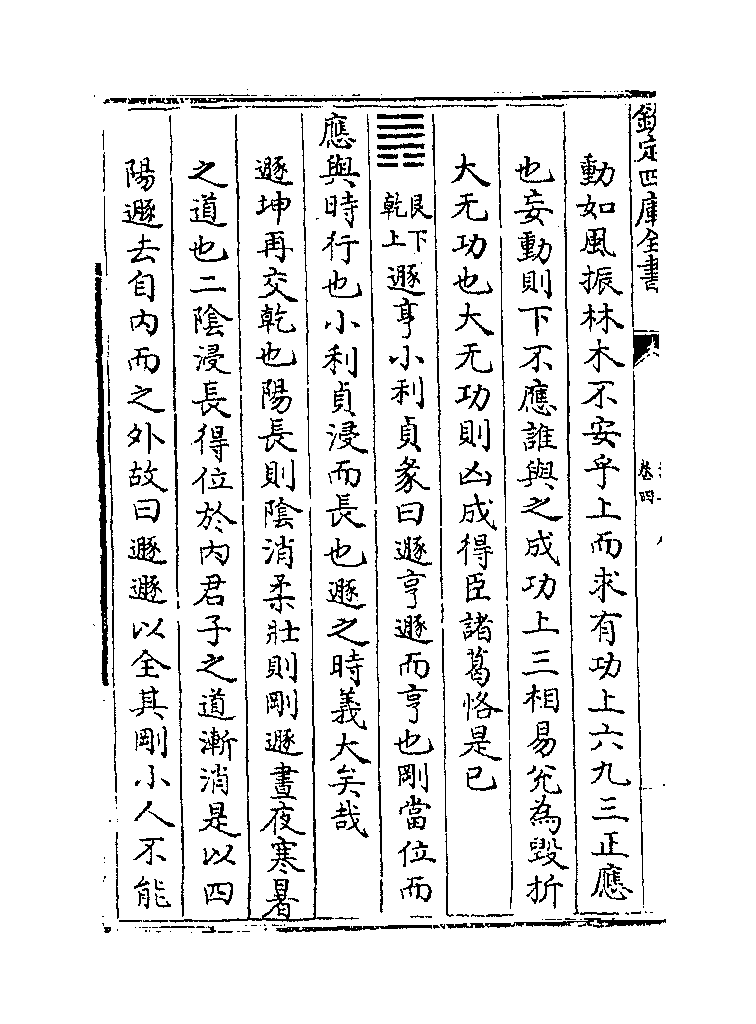 欽定四庫全書
卷四
動如風振林木不安乎上而求有功上六九三正應
也妄動則下不應誰與之成功上三相易兊為毀折
大无功也大无功則凶成得臣諸葛恪是已
䷠艮下乾上遯亨小利貞彖曰遯亨遯而亨也剛當位而
應與時行也小利貞浸而長也遯之時義大矣哉
遯坤再交乾也陽長則陰消柔壯則剛遯晝夜寒暑
之道也二陰浸長得位於内君子之道漸消是以四
陽遯去自内而之外故曰遯遯以全其剛小人不能